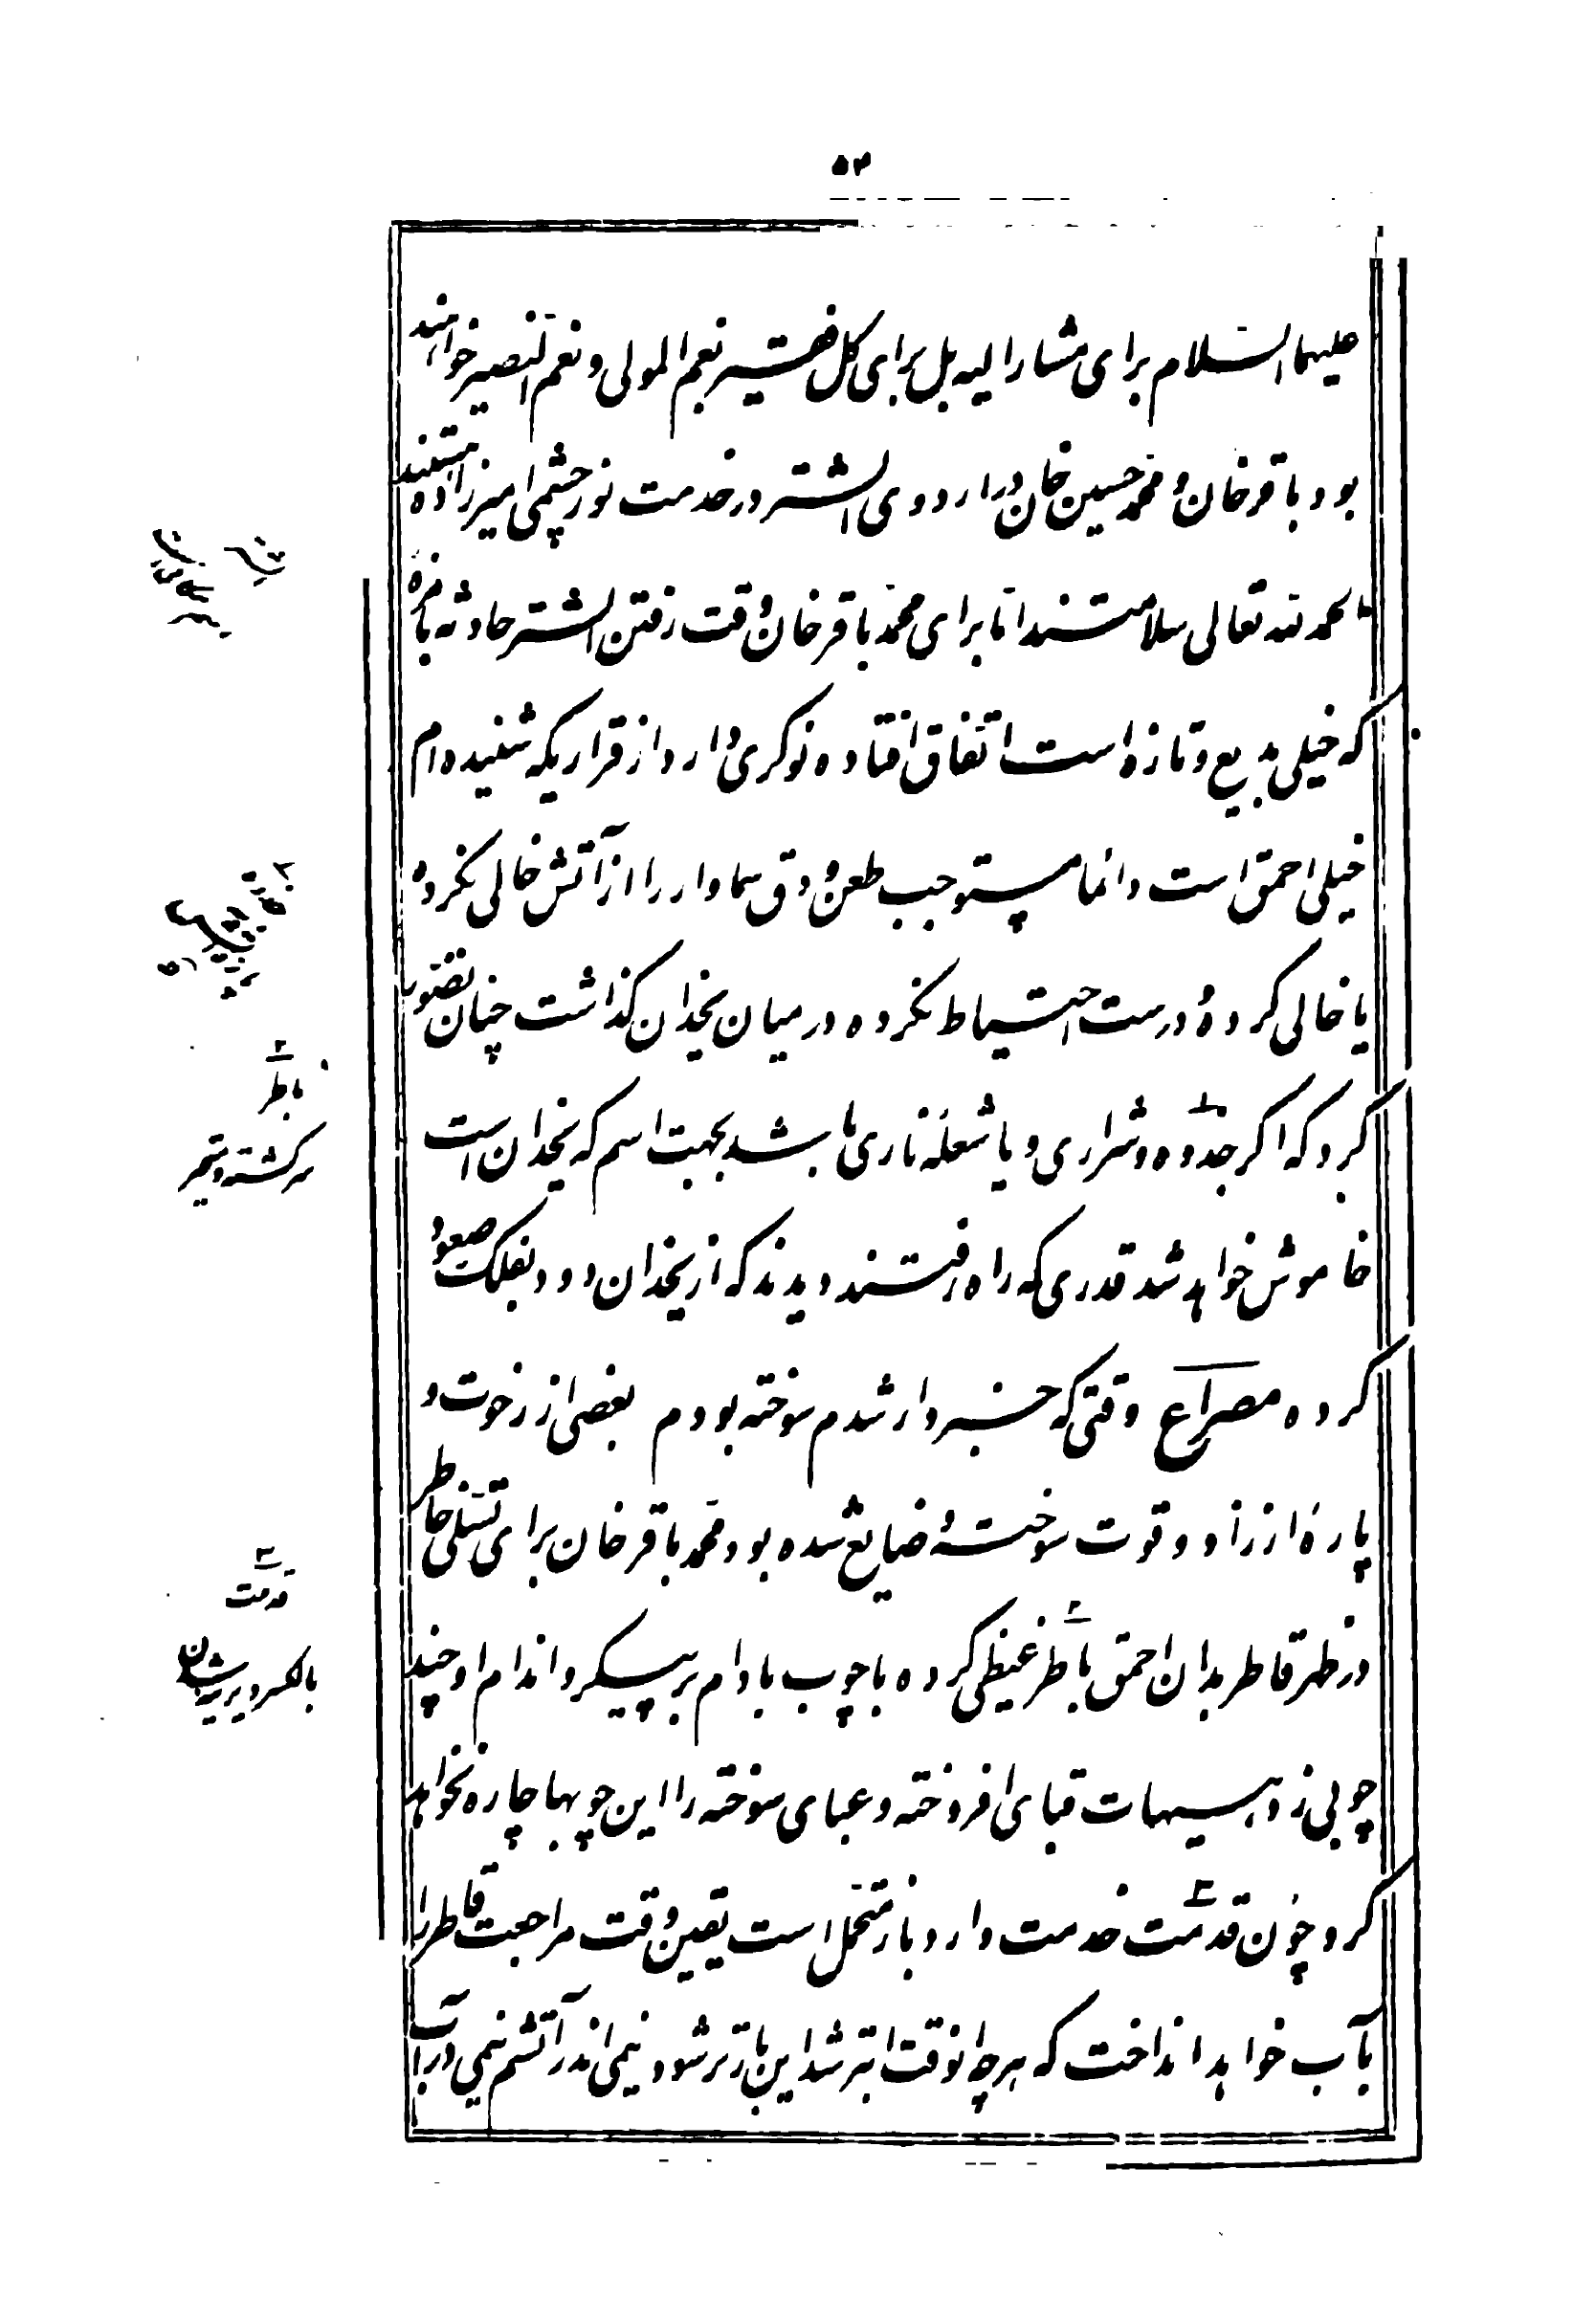 ۵۳
علیهما السّلام برای مشارالیه بل برای کل فقیر نعم المولی و نعم النّصیر خواهند
بود باقرخان و محمد حسین خان در اردوی الشتر در خدمت نورچشمی امیرزاده هستند
الحمد لله تعالی سلامتند امّا برای محمّد باقر خان وقت رفتن الشتر حادثه بامزه
که خیلی بدیع و تازه است اتّفاق افتاده نوکری دارد از قراریکه شنیده‌ام
خیلی احمق است دائما مستوجب طعن و دق سماوار را از آتش خالی نکرده
یا خالی کرده درست احتیاط نکرده در میان یخدان گذاشت چنان تصّور
کرد که اگر جذوه و شراری و یا شعله ناری باشد بجهت اسم که یخدان است
خاموش خواهد شد قدری که راه رفتند دیدند که از یخدان دود بفلک صعود
کرده مصراع وقتی که خبردار شدم سوخته بودم بعضی از رخوت و
پارهٔ از زاد و قوت سوخته و ضایع شده بود محمّد باقر خان برای تسّلی خاطر
در ظهر قاطر بدان احمق باطر غیظی کرده با چوب بادام بر پیکر و اندام او چند
چوبی زد هیهات قبای افروخته و عبای سوخته را این چوبها چاره نخواهد
کرد چون قدمت خدمت دارد باز متحّمل است یقین وقت مراجعت قاطر را
بآب خواهد انداخت که هرچه انوقت ابتر شد این بار تر شود نیمی اندر آتشم نیمی در آب
باطر
سرگشته و متحیر
قدمت
بالکسر دیرینه شدن